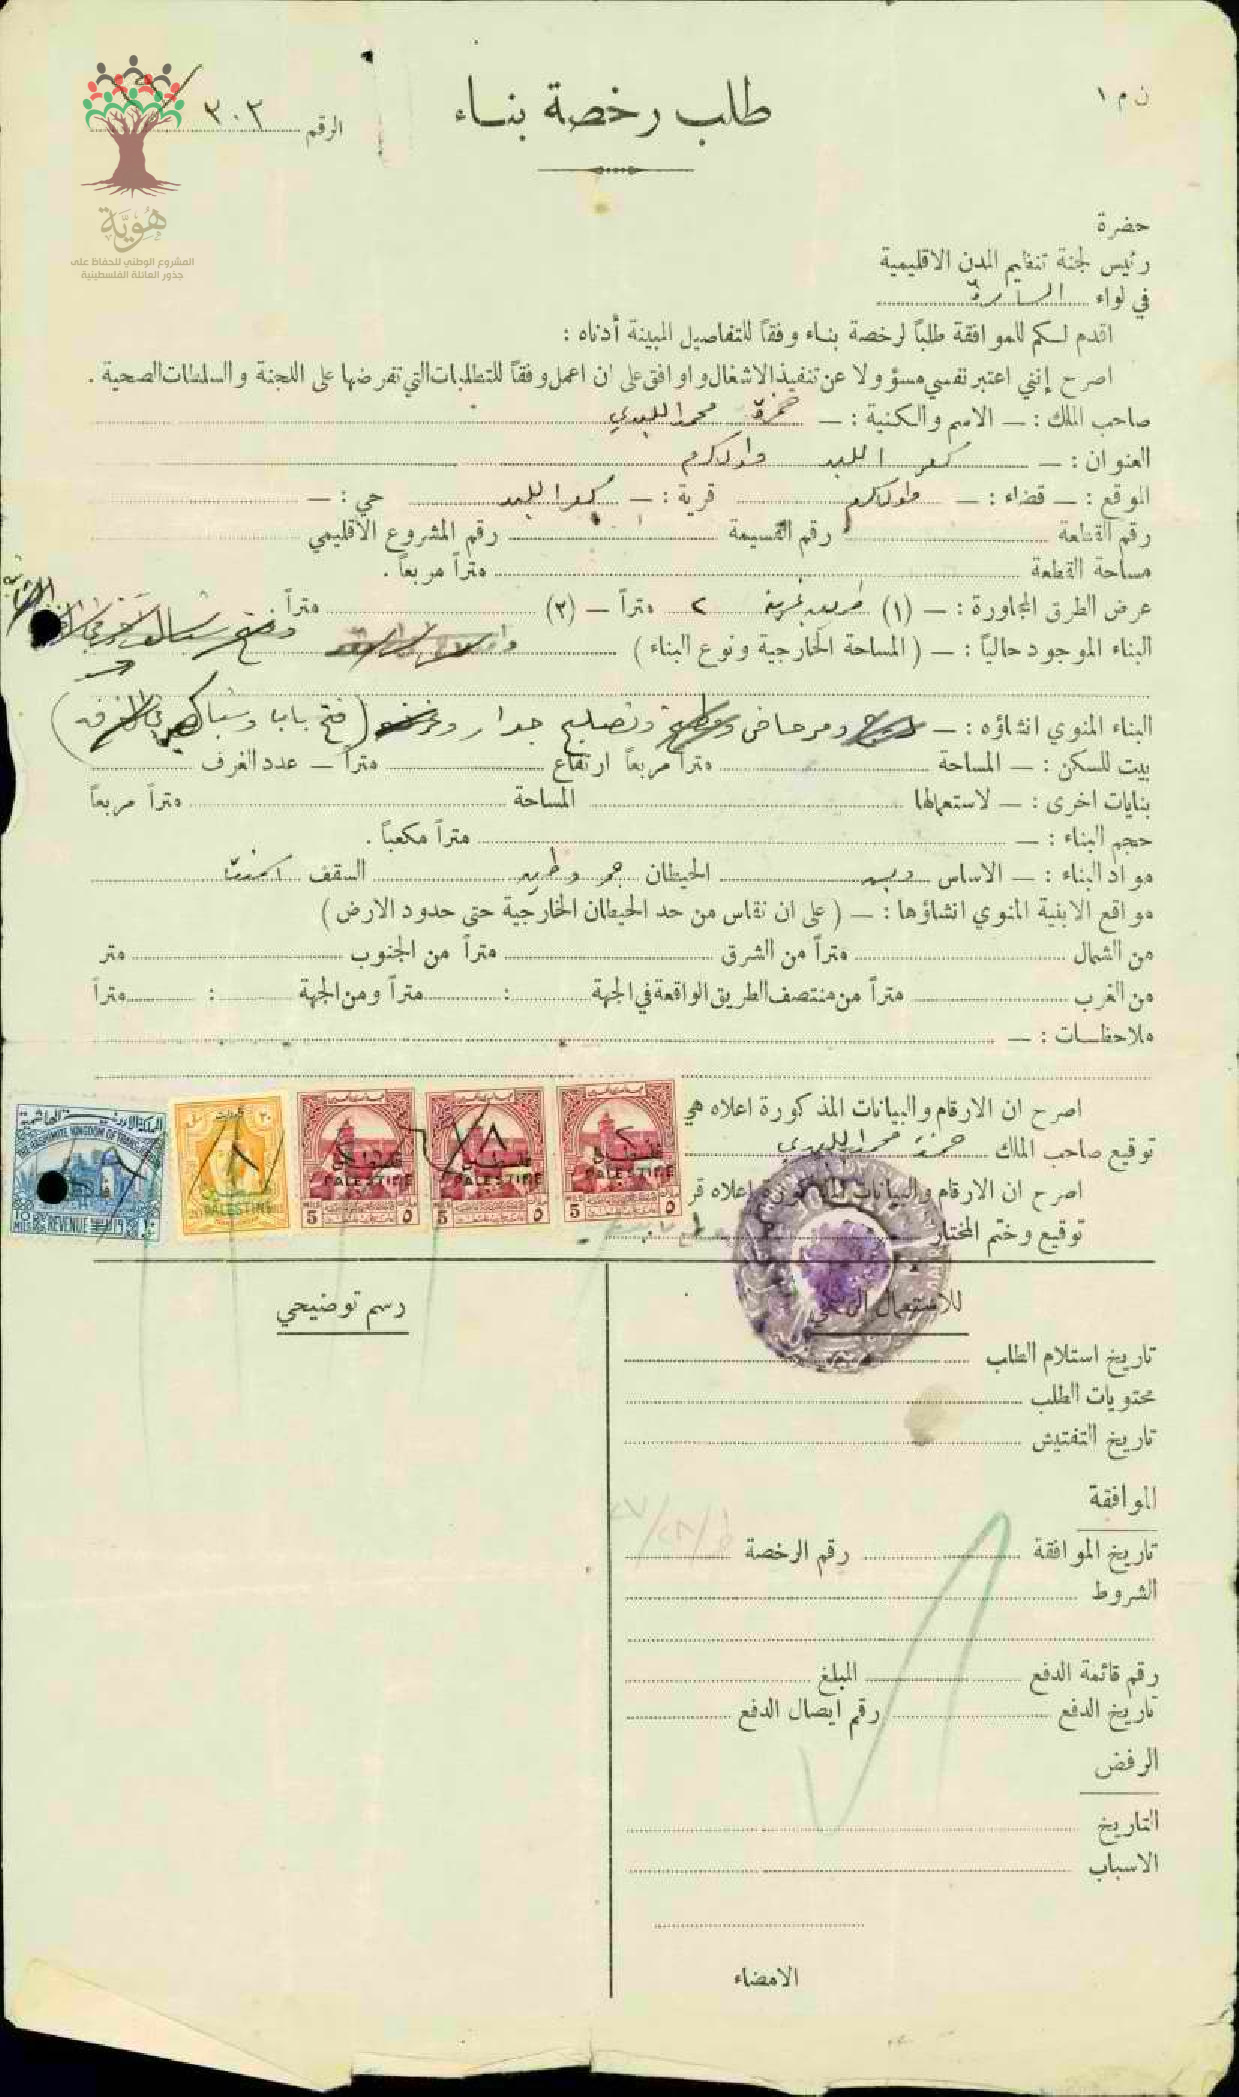 ن م ١
طلب رخصة بناء
الرقم ٣٠٢
هُوِيَّة
المشروع الوطني للحفاظ على
جذور العائلة الفلسطينية
حضرة
رئيس لجنة تنظيم المدن الاقليمية
في لواء السامرة
اقدم لكم للموافقة طلباً لرخصة بناء وفقاً للتفاصيل المبينة أدناه :
اصرح إنني اعتبر نفسي مسؤولا عن تنفيذ الاشغال واوافق على ان اعمل وفقاً للتطلبات التي تفرضها على اللجنة والسلطات الصحية .
صاحب الملك : — الاسم والكنية : — حمزة محمد اللبدي
العنوان : — كفر اللبد طولكرم
الموقع : — قضاء : — طولكرم قرية : — كفر اللبد حي : —
رقم القطعة رقم القسيمة رقم المشروع الاقليمي
مساحة القطعة متراً مربعاً .
عرض الطرق المجاورة : — (١) طريق غربية ٢ متراً — (٢) متراً
البناء الموجود حالياً : — ( المساحة الخارجية ونوع البناء )
البناء المنوي انشاؤه : — ومرحاض وتصليح جدار ( فتح باب وشباك
بيت للسكن : — المساحة متراً مربعاً ارتفاع متراً — عدد الغرف
بنايات اخرى : — لاستعمالها المساحة متراً مربعاً
حجم البناء : — متراً مكعباً .
مواد البناء : — الاساس الحيطان حجر وطين السقف اسمنت
مواقع الابنية المنوي انشاؤها : — ( على ان تقاس من حد الحيطان الخارجية حتى حدود الارض )
من الشمال متراً من الشرق متراً من الجنوب متر
من الغرب متراً من منتصف الطريق الواقعة في الجهة : متراً ومن الجهة : متراً
ملاحظات : —
اصرح ان الارقام والبيانات المذكورة اعلاه هي
توقيع صاحب الملك حمزة محمد اللبدي
اصرح ان الارقام والبيانات المذكورة اعلاه قر
توقيع وختم المختار
المملكة الاردنية الهاشمية
THE HASHEMITE KINGDOM OF
10 MILS REVENUE ١٠
٢٠ PALESTINE
فلسطين PALESTINE 5 MILS ٥
فلسطين PALESTINE 5 MILS ٥
فلسطين PALESTINE 5 MILS ٥
رسم توضيحي
للاستعمال الرسمي
تاريخ استلام الطلب
محتويات الطلب
تاريخ التفتيش
الموافقة
تاريخ الموافقة رقم الرخصة
الشروط
رقم قائمة الدفع المبلغ
تاريخ الدفع رقم ايصال الدفع
الرفض
التاريخ
الاسباب
الامضاء